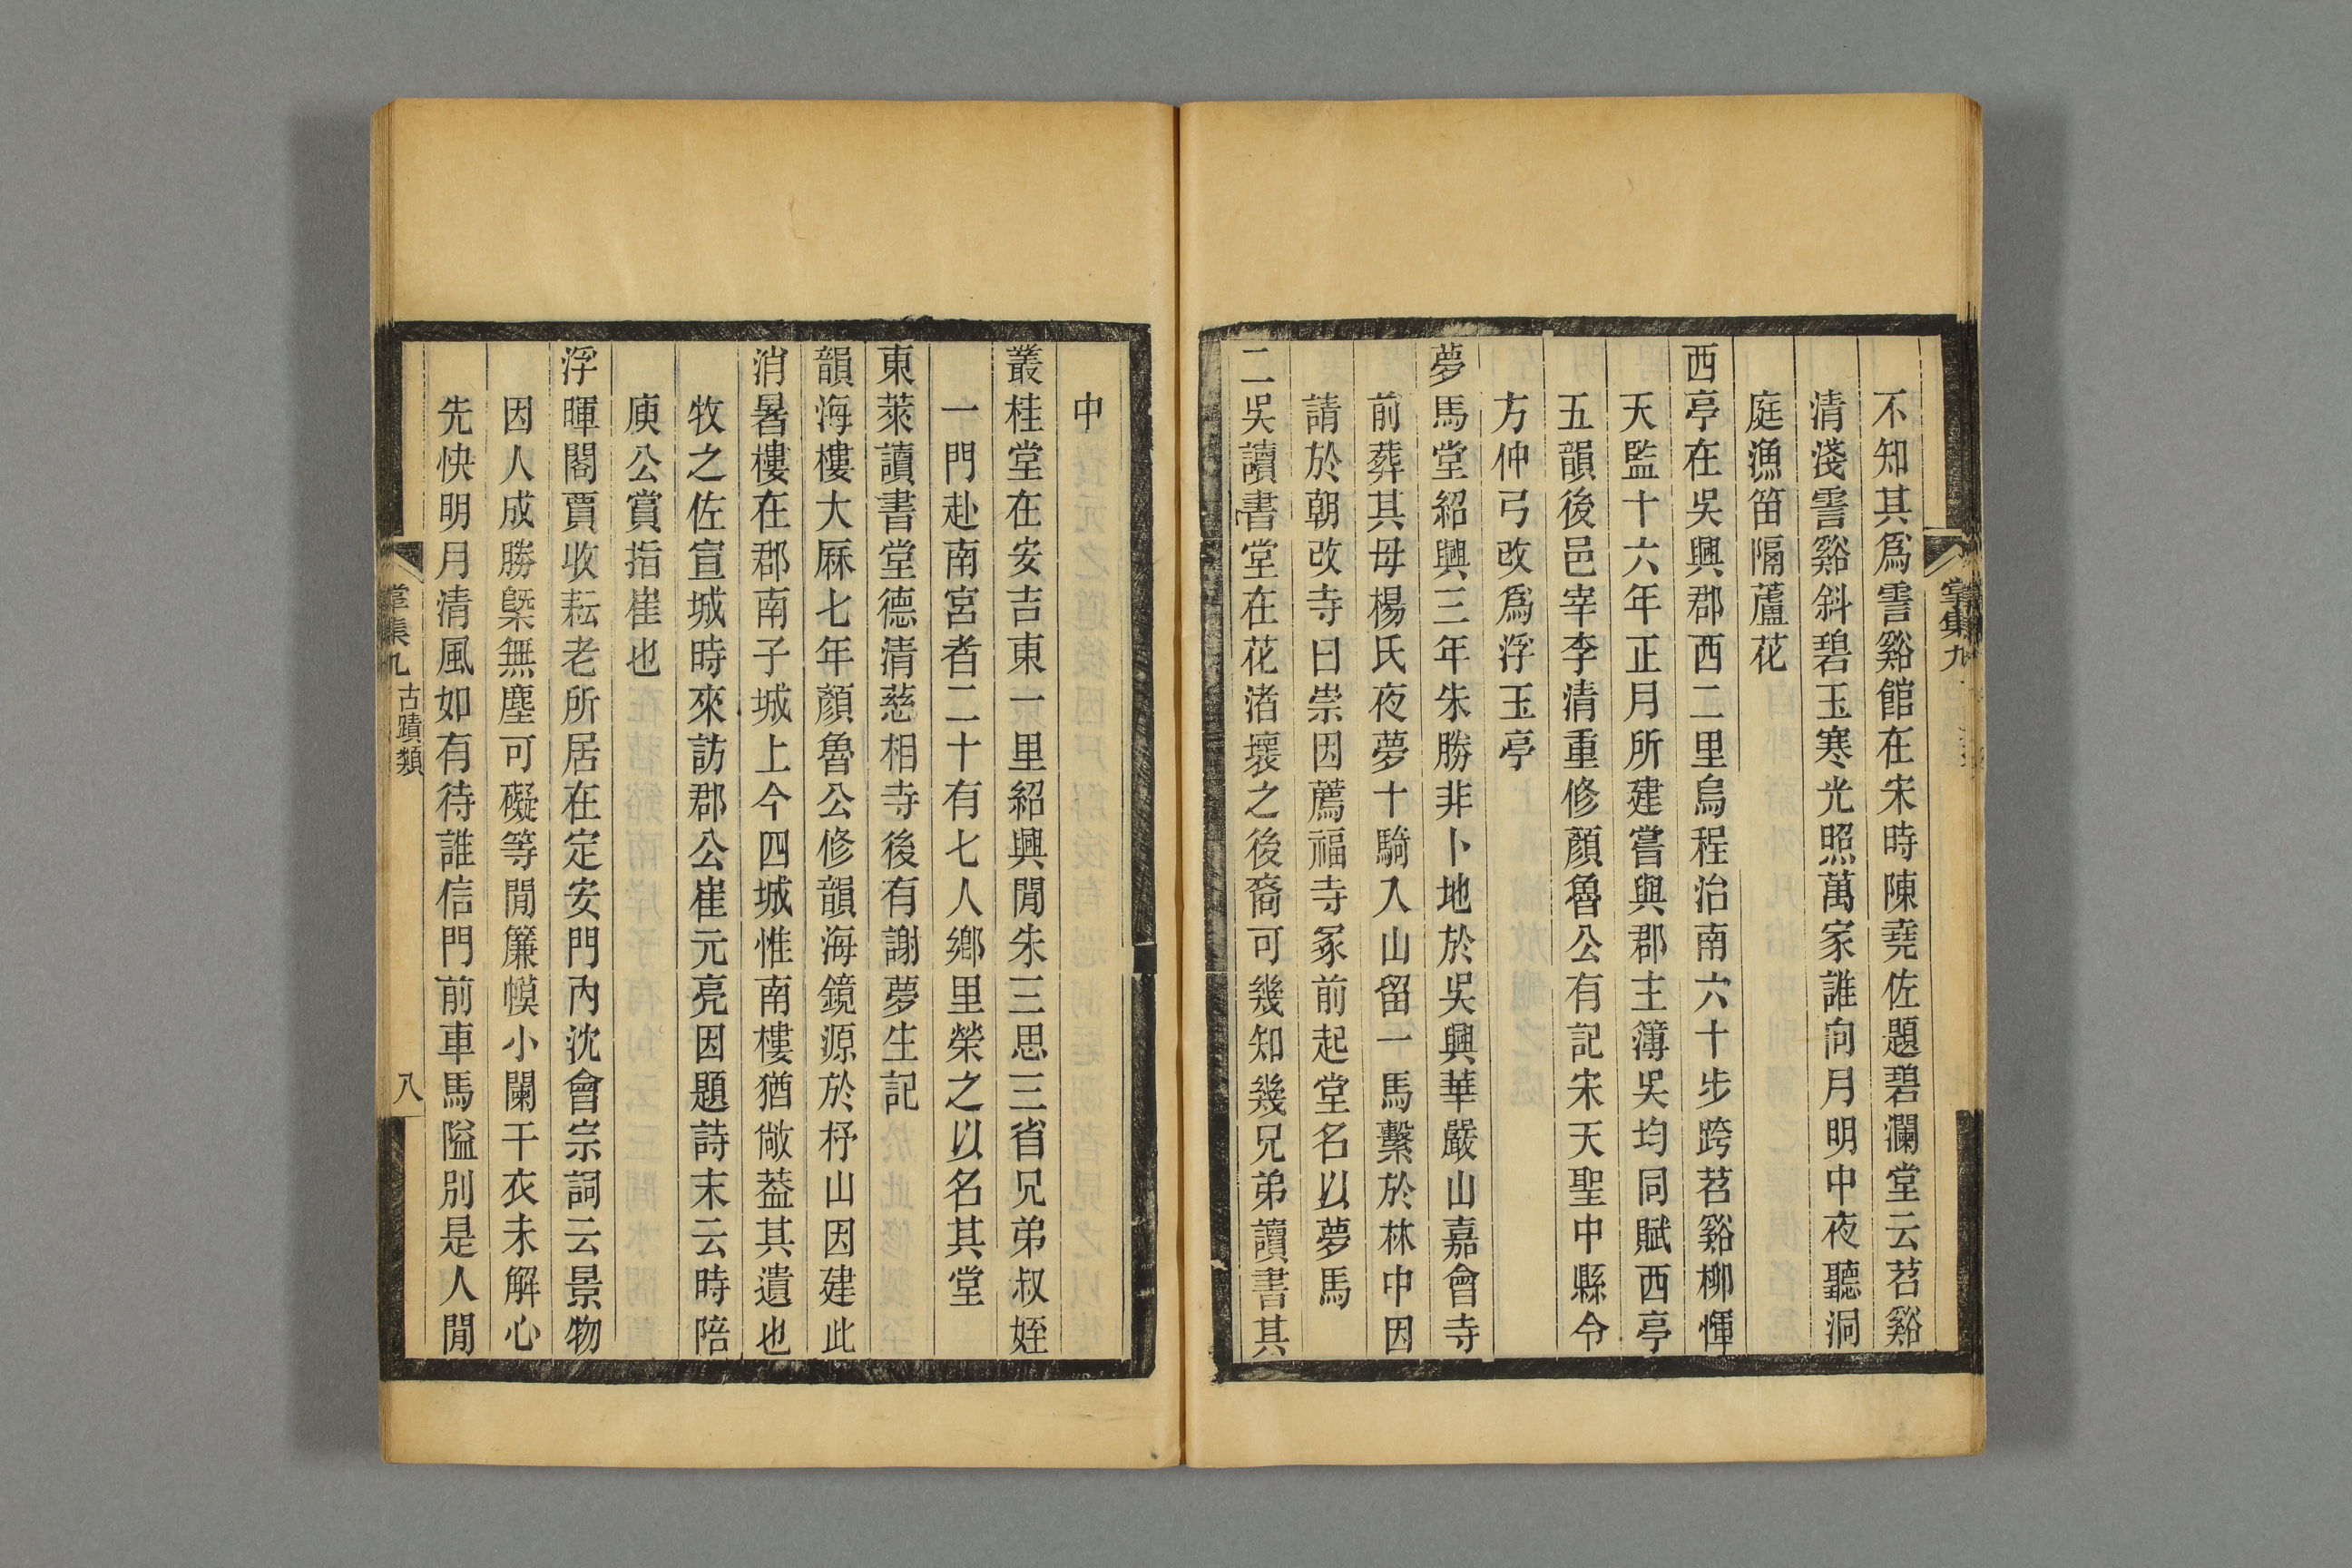 不知其爲霅谿館在宋時陳堯佐題碧瀾堂云苕谿
清淺霅谿斜碧玉寒光照萬家誰向月明中夜聽洞
庭漁笛隔蘆花
西亭在吳興郡西二里烏程治南六十步跨苕谿柳惲
天監十六年正月所建嘗與郡主簿吳均同賦西亭
五韻後邑宰李清重修顏魯公有記宋天聖中縣令
方仲弓改爲浮玉亭
夢馬堂紹興三年朱勝非卜地於吳興華嚴山嘉會寺
前葬其母楊氏夜夢十騎入山留一馬繫於林中因
請於朝改寺曰崇因薦福寺冢前起堂名以夢馬
二吳讀書堂在花渚壞之後裔可幾知幾兄弟讀書其
中
叢桂堂在安吉東一里紹興閒朱三思三省兄弟叔姪
一門赴南宮者二十有七人鄉里榮之以名其堂
東萊讀書堂德清慈相寺後有謝夢生記
韻海樓大厤七年顏魯公修韻海鏡源於杼山因建此
消暑樓在郡南子城上今四城惟南樓猶敞葢其遺也
牧之佐宣城時來訪郡公崔元亮因題詩末云時陪
庾公賞指崔也
浮暉閣賈收耘老所居在定安門內沈會宗詞云景物
因人成勝槩無塵可礙等閒簾幙小闌干衣未解心
先快明月清風如有待誰信門前車馬隘別是人閒
掌集九
古蹟類
八